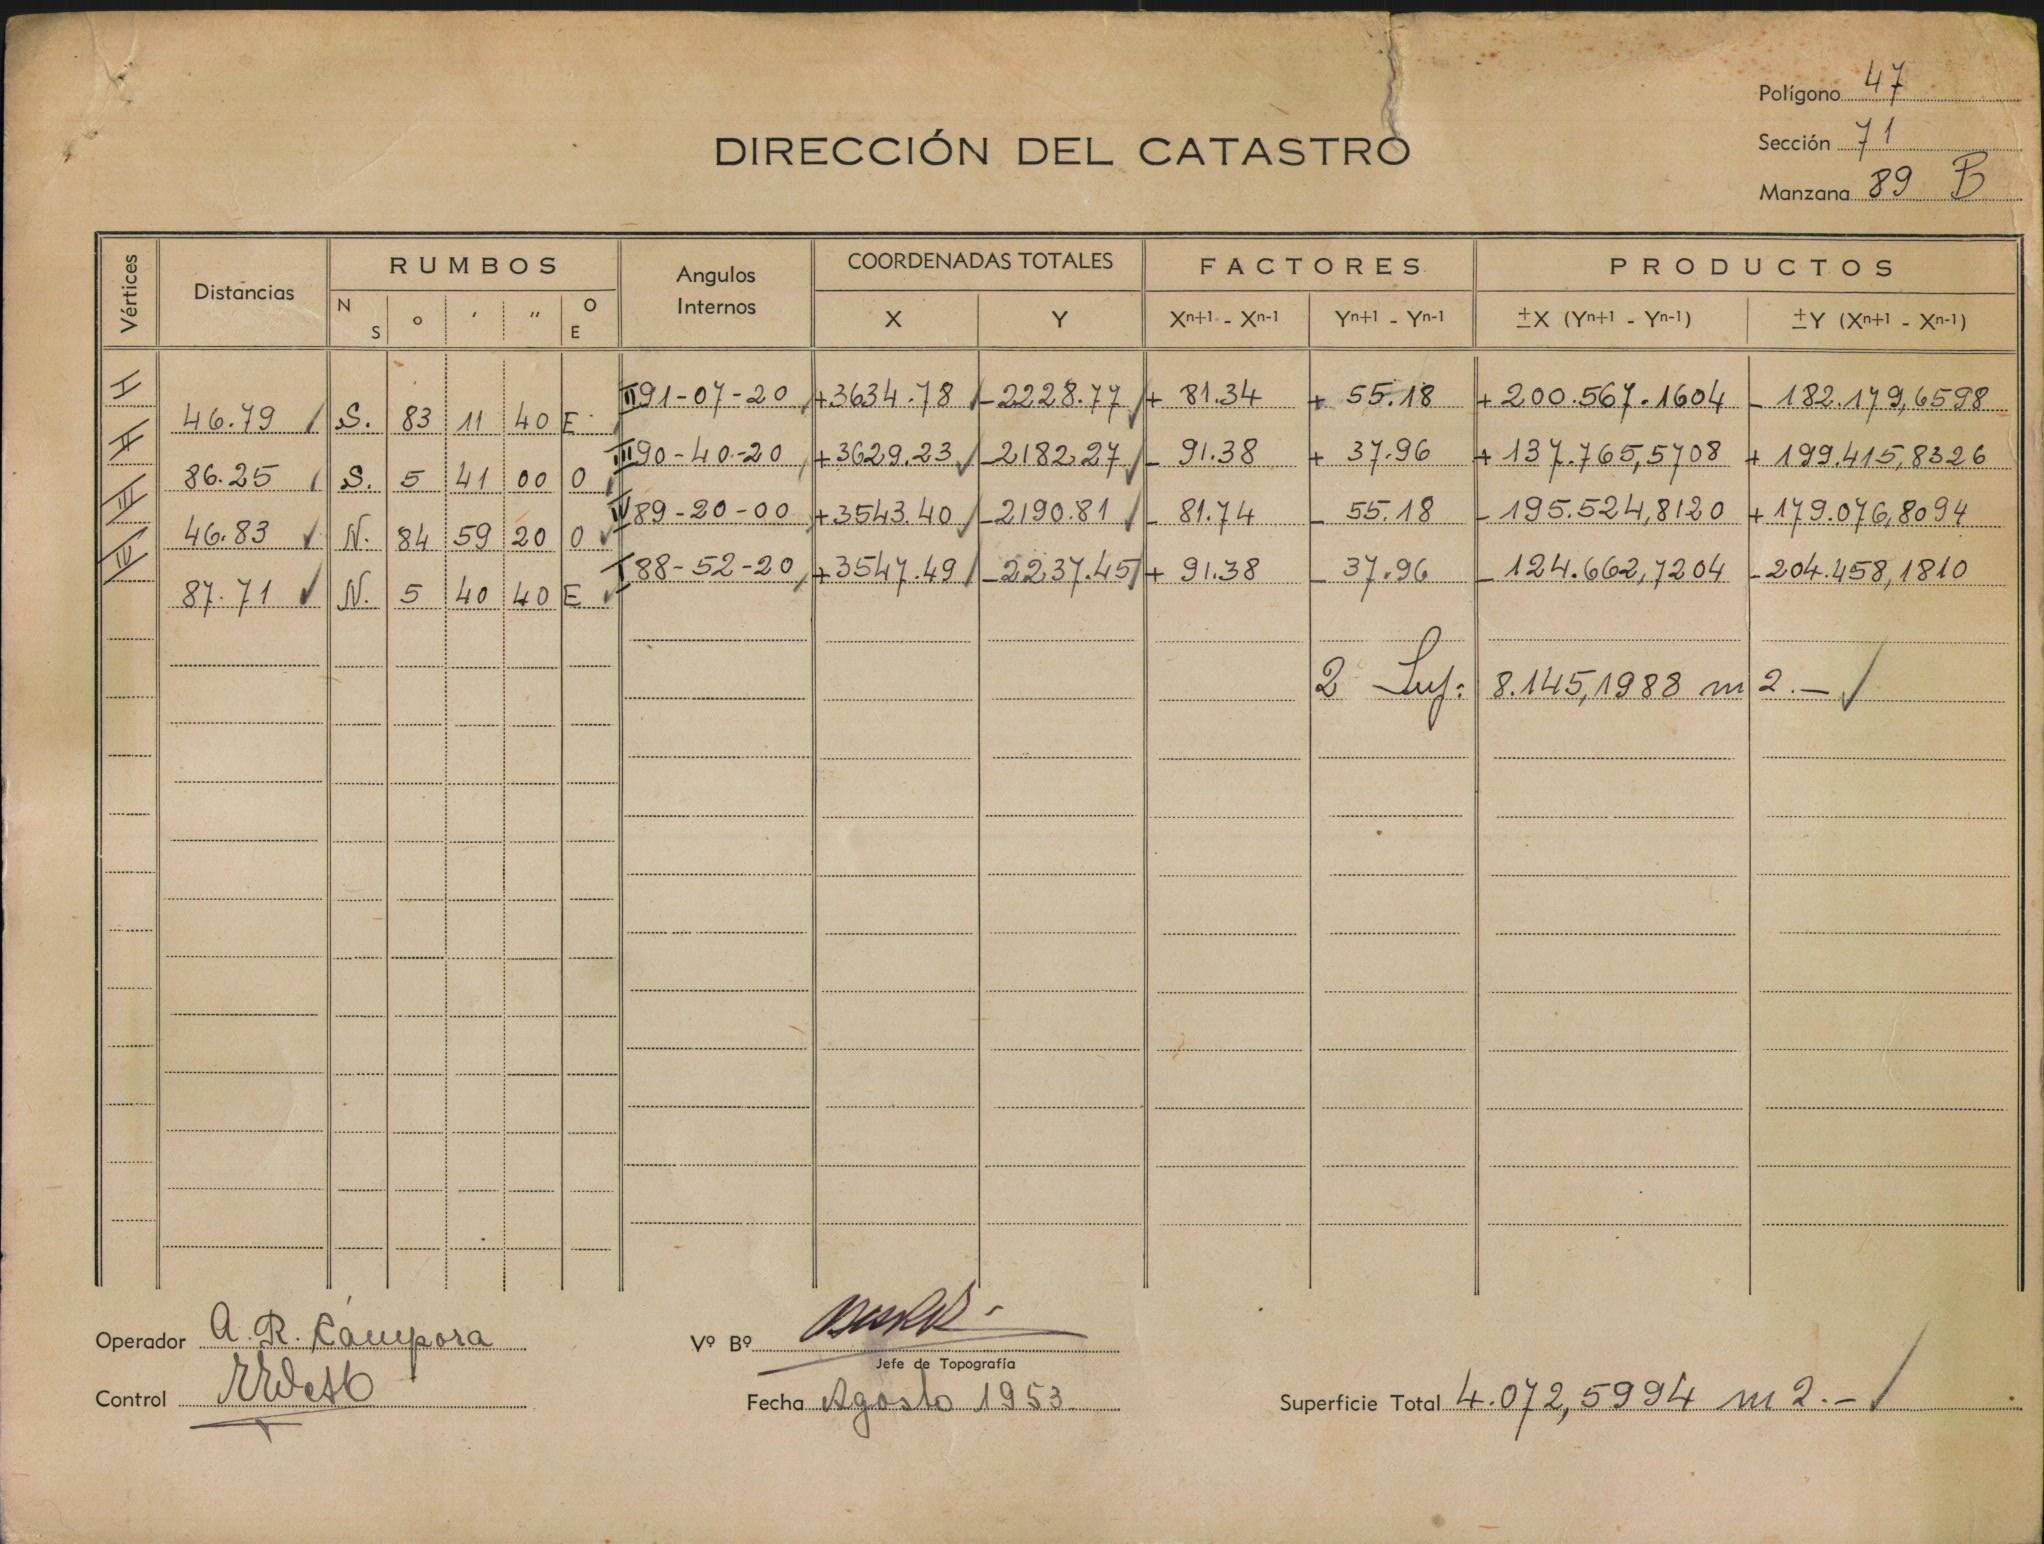 Polígono 47
Sección 71
Manzana 89 B
DIRECCIÓN DEL CATASTRO
Vértices Distancias RUMBOS Angulos Internos COORDENADAS TOTALES FACTORES PRODUCTOS
N S ° ' " O E X Y Xn+1 - Xn-1 Yn+1 - Yn-1 ±X (Yn+1 - Yn-1) ±Y (Xn+1 - Xn-1)
I II 91-07-20 +3634.78 -2228.77 + 81.34 + 55.18 +200.567.1604 - 182.179,6598
46.79 S. 83 11 40 E
II III 90-40-20 +3629.23 -2182.27 - 91.38 + 37.96 +137.765,5708 + 199.415,8326
86.25 S. 5 41 00 O
III IV 89-20-00 +3543.40 -2190.81 - 81.74 - 55.18 -195.524,8120 +179.076,8094
46.83 N. 84 59 20 O
IV I 88-52-20 +3547.49 -2237.45 + 91.38 - 37.96 -124.662,7204 -204.458,1810
87.71 N. 5 40 40 E
2 Sup: 8.145,1988 m2.-
Operador A. R. Cámpora
Vº Bº
Jefe de Topografía
Control
Fecha Agosto 1953
Superficie Total 4.072,5994 m2.-